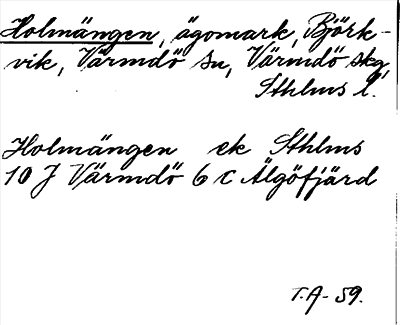 Holmängen, ägomark, Björk-
vik, Värmdö sn, Värmdö skg,
Sthlms l.
Holmängen ek Sthlms
10 J Värmdö 6 c Älgöfjärd
T.A- 59.